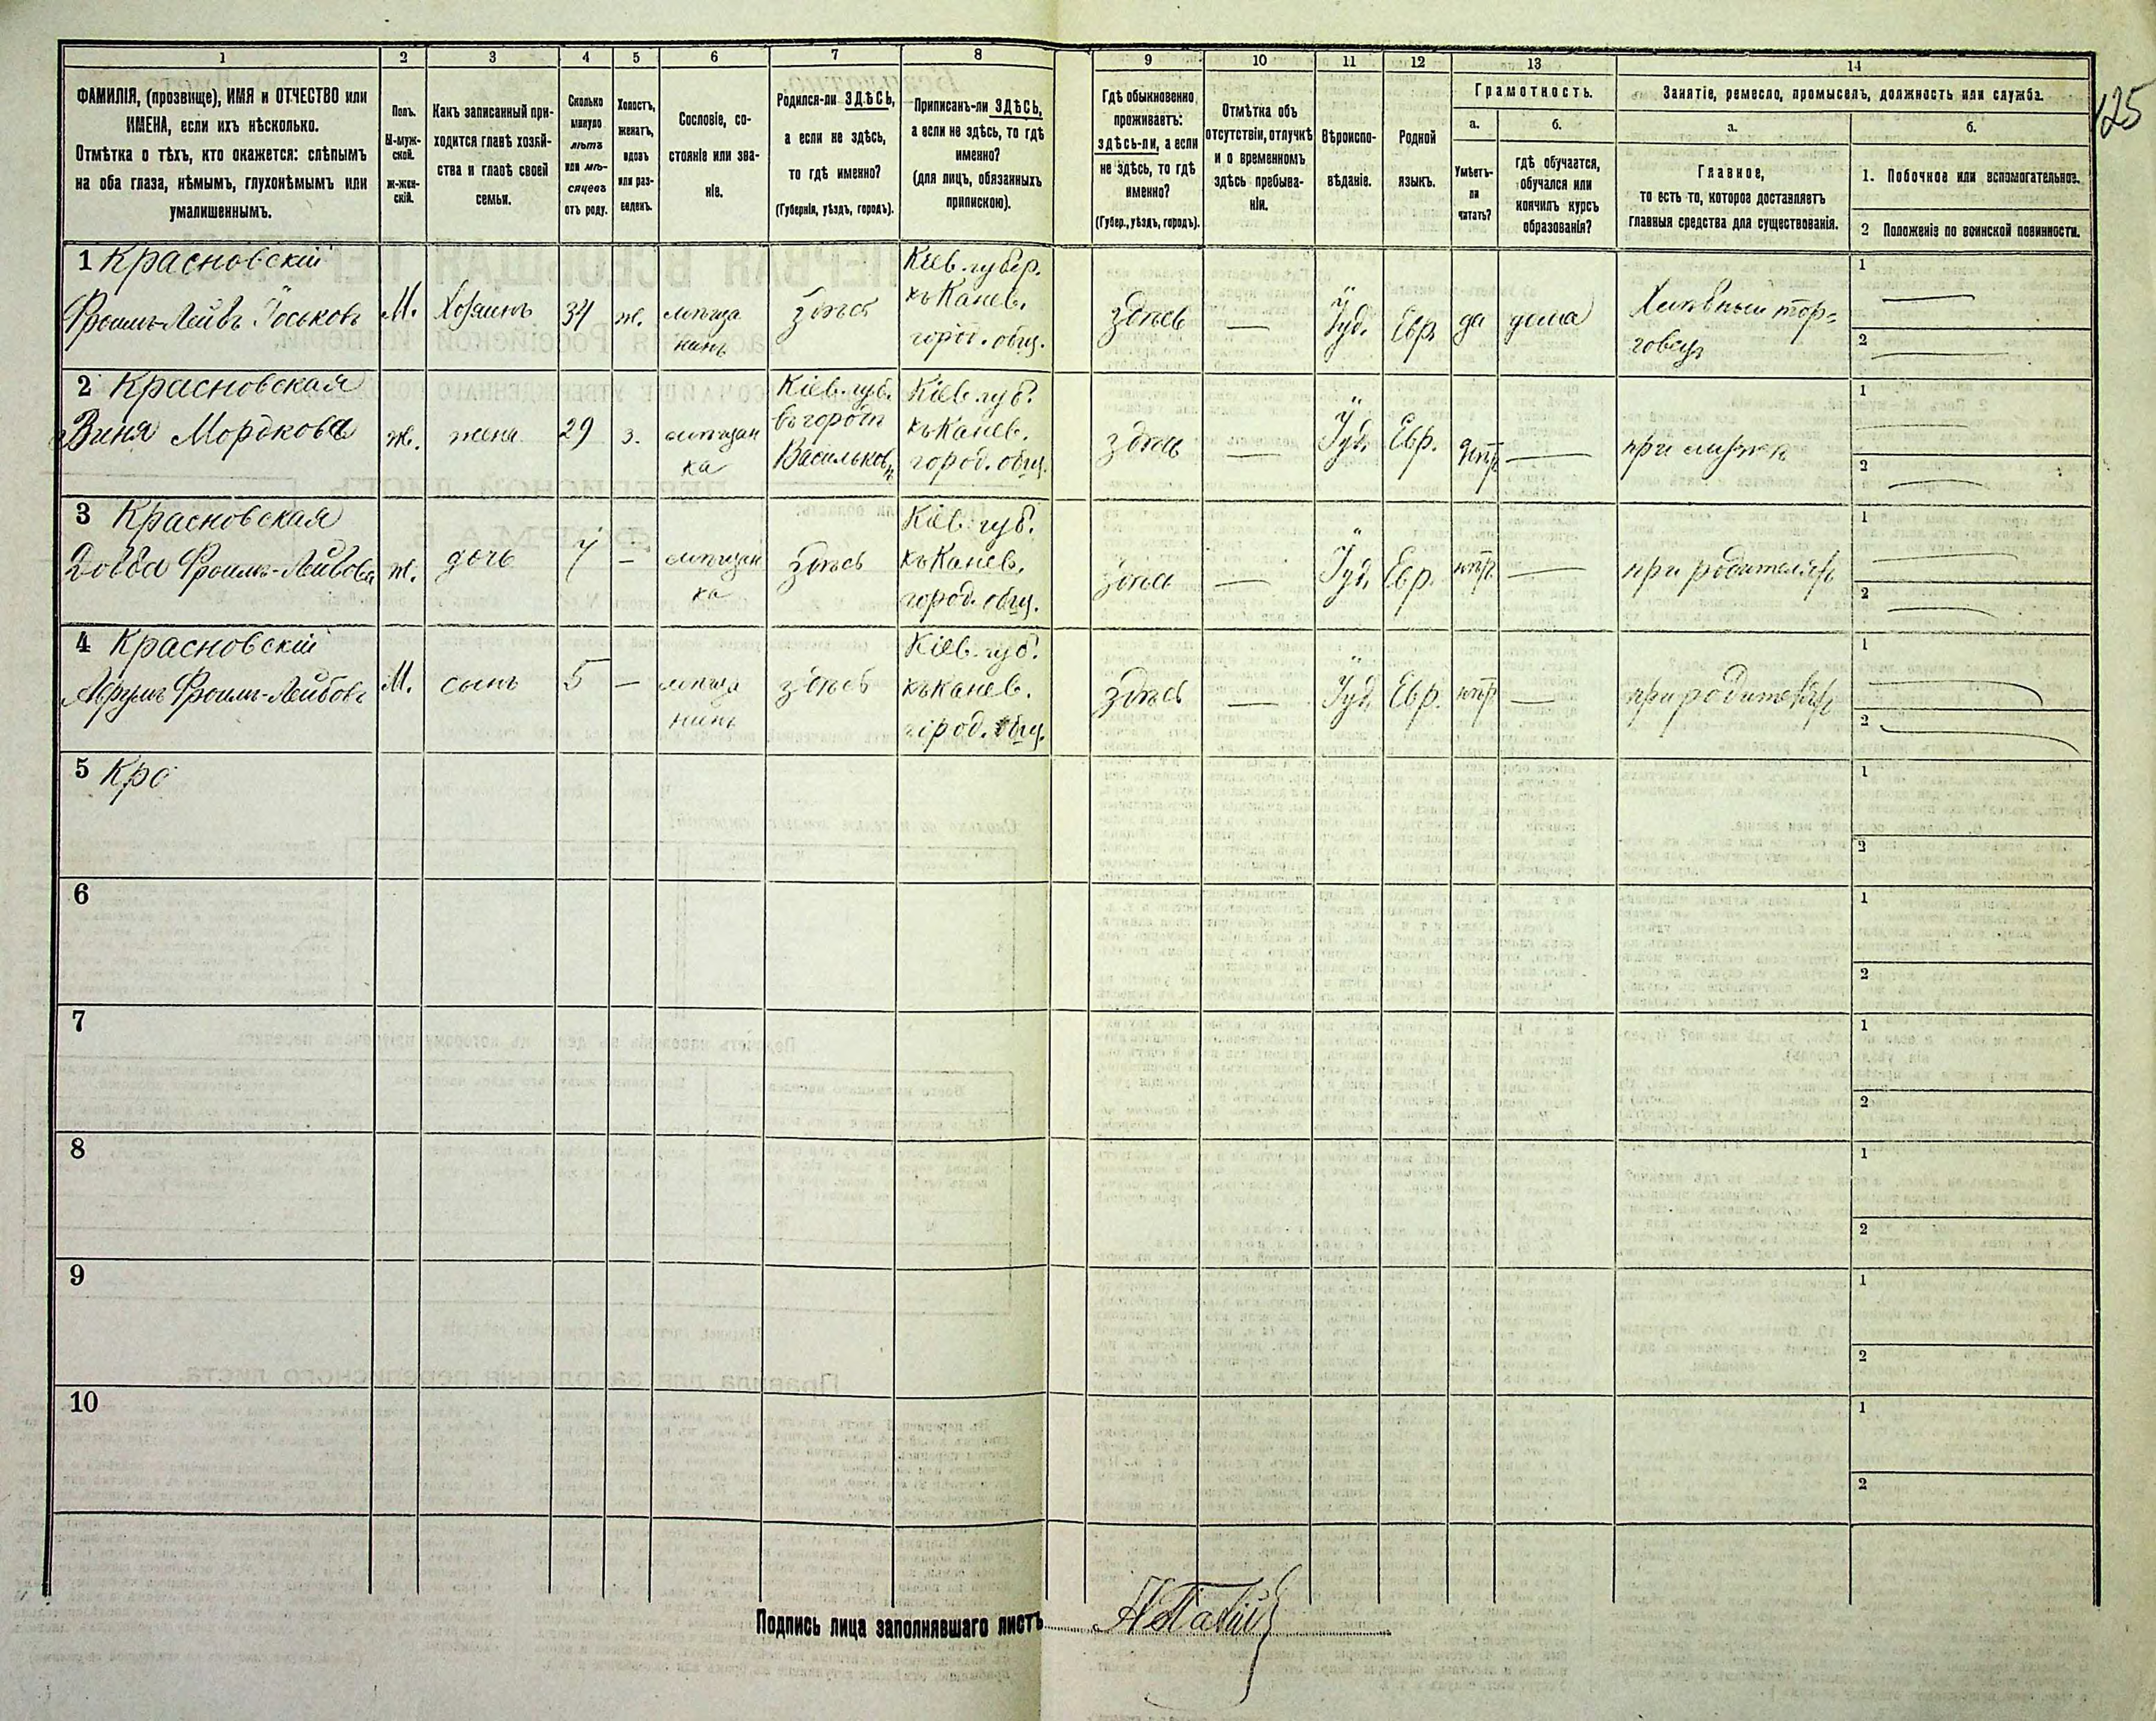 125
1 2 3 4 5 6 7 8 9 10 11 12 13 14
ФАМИЛІЯ, (прозвище), ИМЯ и ОТЧЕСТВО или
ИМЕНА, если ихъ нѣсколько.
Отмѣтка о тѣхъ, кто окажется: слѣпымъ
на оба глаза, нѣмымъ, глухонѣмымъ или
умалишеннымъ.
Полъ.
М-муж-
ской.
Ж-жен-
скій.
Какъ записанный при-
ходится главѣ хозяй-
ства и главѣ своей
семьи.
Сколько
минуло
лѣтъ
или мѣ-
сяцевъ
отъ роду.
Холостъ,
женатъ,
вдовъ
или раз-
веденъ.
Сословіе, со-
стояніе или зва-
ніе.
Родился-ли ЗДѢСЬ,
а если не здѣсь,
то гдѣ именно?
(Губернія, уѣздъ, городъ).
Приписанъ-ли ЗДѢСЬ,
а если не здѣсь, то гдѣ
именно?
(для лицъ, обязанныхъ
припискою).
Гдѣ обыкновенно
проживаетъ:
здѣсь-ли, а если
не здѣсь, то гдѣ
именно?
(Губер., уѣздъ, городъ).
Отмѣтка объ
отсутствіи, отлучкѣ
и о временномъ
здѣсь пребыва-
ніи.
Вѣроиспо-
вѣданіе.
Родной
языкъ.
Грамотность.
а.
Умѣетъ-
ли
читать?
б.
гдѣ обучается,
обучался или
кончилъ курсъ
образованія?
Занятіе, ремесло, промыселъ, должность или служба.
а.
Главное,
то есть то, которое доставляетъ
главныя средства для существованія.
б.
1. Побочное или вспомогательное.
2 Положеніе по воинской повинности.
1 Красновскій
Фроимъ-Лейвъ Іоськовъ
М.
Хозяинъ
34
ж.
мѣща
нинъ
здѣсь
Кіев. губер.
къ Канев.
город. общ.
здѣсь
—
Іуд.
Евр.
да
дома
тор=
говец
1 —
2 —
2 Красновская
Мордкова
ж.
жена
29
з.
мѣщан
ка
Кіев. губ.
въ городѣ
Васильков
Кіев. губ.
къ Канев.
город. общ.
здѣсь
—
Іуд.
Евр.
—
при мужѣ
1 —
2 —
3 Красновская
Довба Фроимъ-Лейвова
ж.
дочь
7
—
мѣщан
ка
здѣсь
Кіев. губ.
къ Канев.
город. общ.
здѣсь
—
Іуд.
Евр.
нѣт
—
при родителяхъ
1 —
2 —
4 Красновскій
Аврумъ Фроимъ-Лейвовъ
М.
сынъ
5
—
мѣща
нинъ
здѣсь
Кіев. губ.
къ Канев.
город. общ.
здѣсь
—
Іуд.
Евр.
нѣт
—
при родителяхъ
1 —
2 —
5 Кро
1
2
6
1
2
7
1
2
8
1
2
9
1
2
10
1
2
Подпись лица заполнявшаго листъ